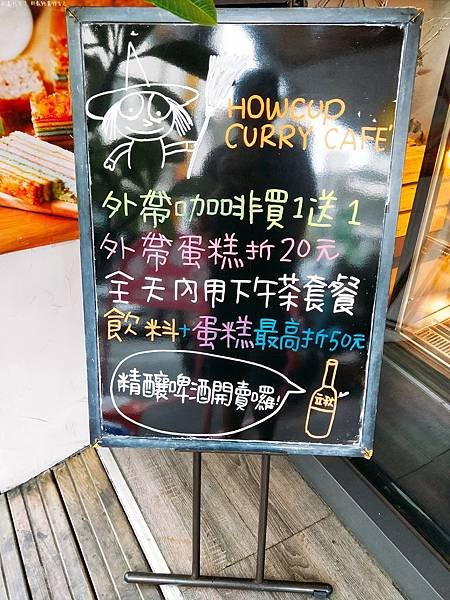 HOWCUP
CURRY CAFE'
外帶咖啡買1送1
外帶蛋糕折20元
全天內用下午茶套餐
飲料+蛋糕最高折50元
精釀啤酒開賣囉!